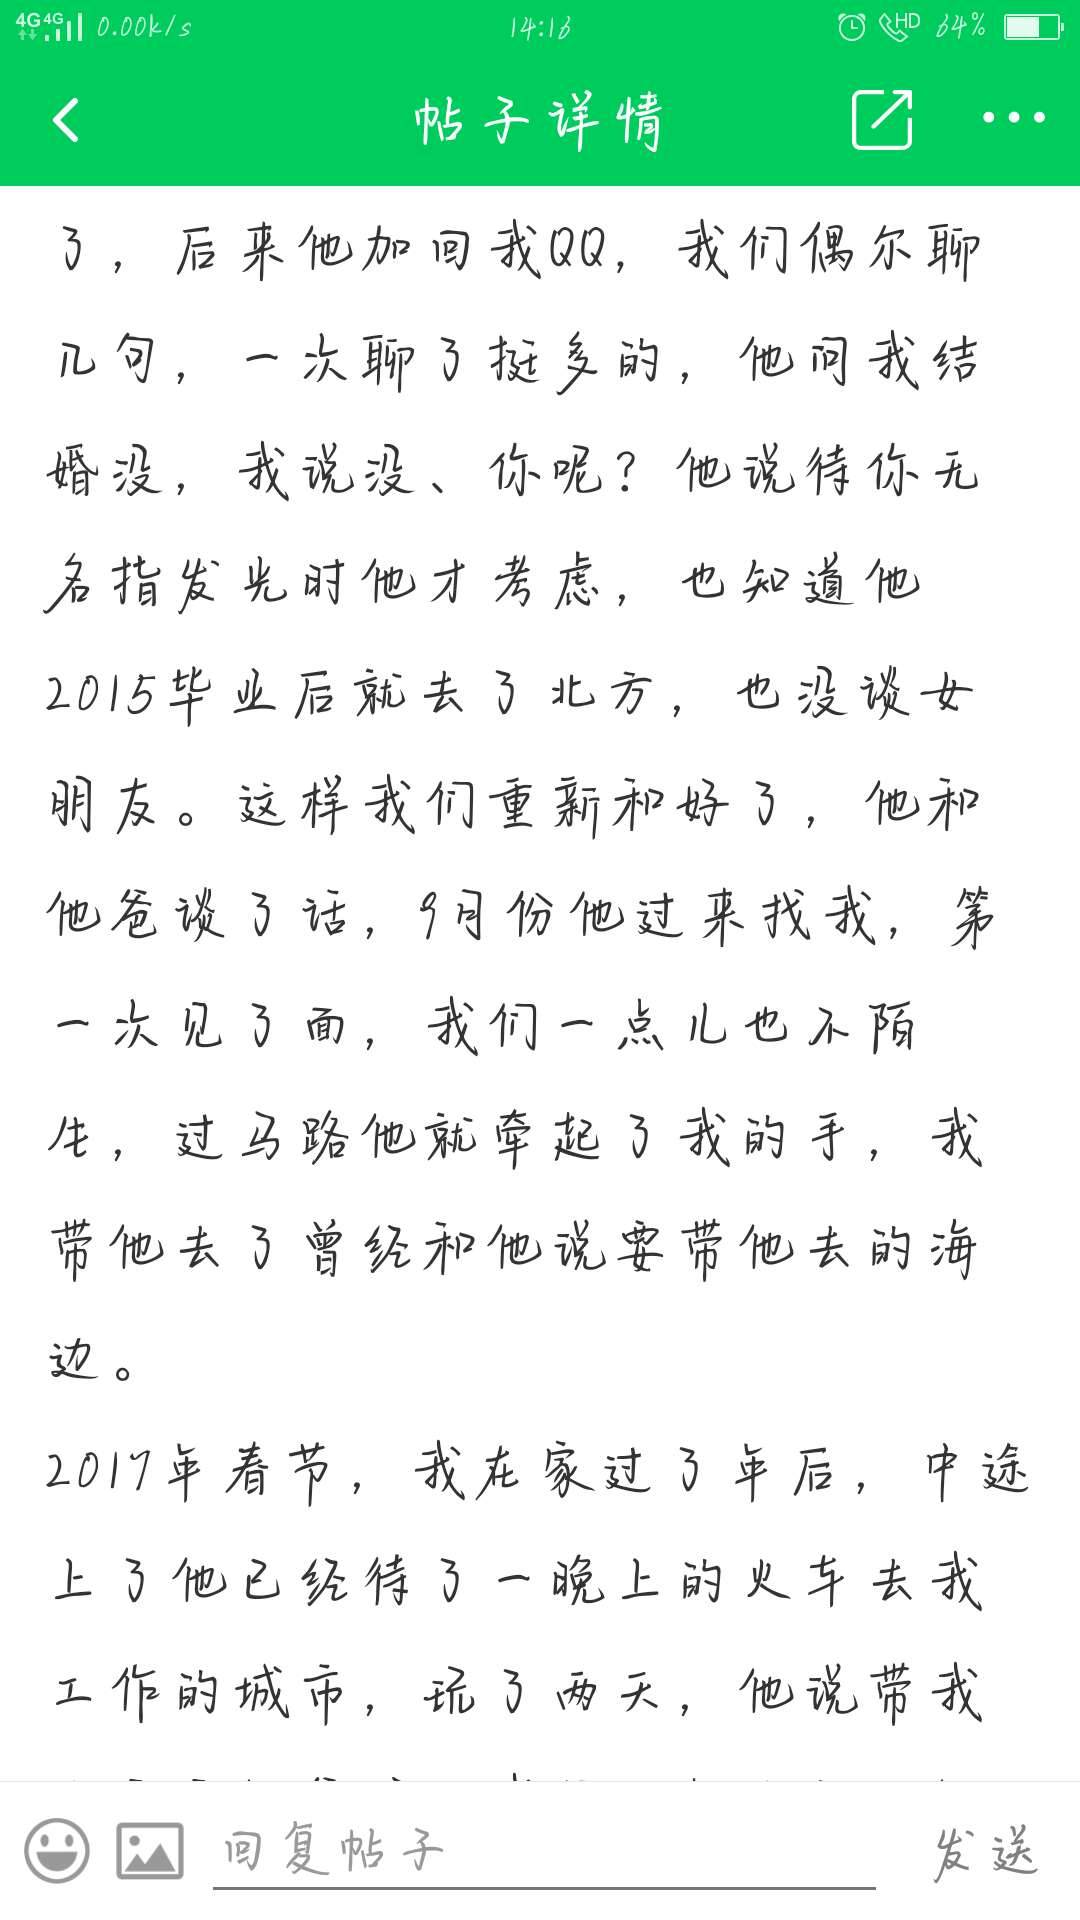 4G 4G 0.00k/s 14:16 HD 64%
帖子详情
了，后来他加回我QQ，我们偶尔聊
几句，一次聊了挺多的，他问我结
婚没，我说没、你呢？他说待你无
名指发光时他才考虑，也知道他
2015毕业后就去了北方，也没谈女
朋友。这样我们重新和好了，他和
他爸谈了话，9月份他过来找我，第
一次见了面，我们一点儿也不陌
生，过马路他就牵起了我的手，我
带他去了曾经和他说要带他去的海
边。
2017年春节，我在家过了年后，中途
上了他已经待了一晚上的火车去我
工作的城市，玩了两天，他说带我
回复帖子 发送